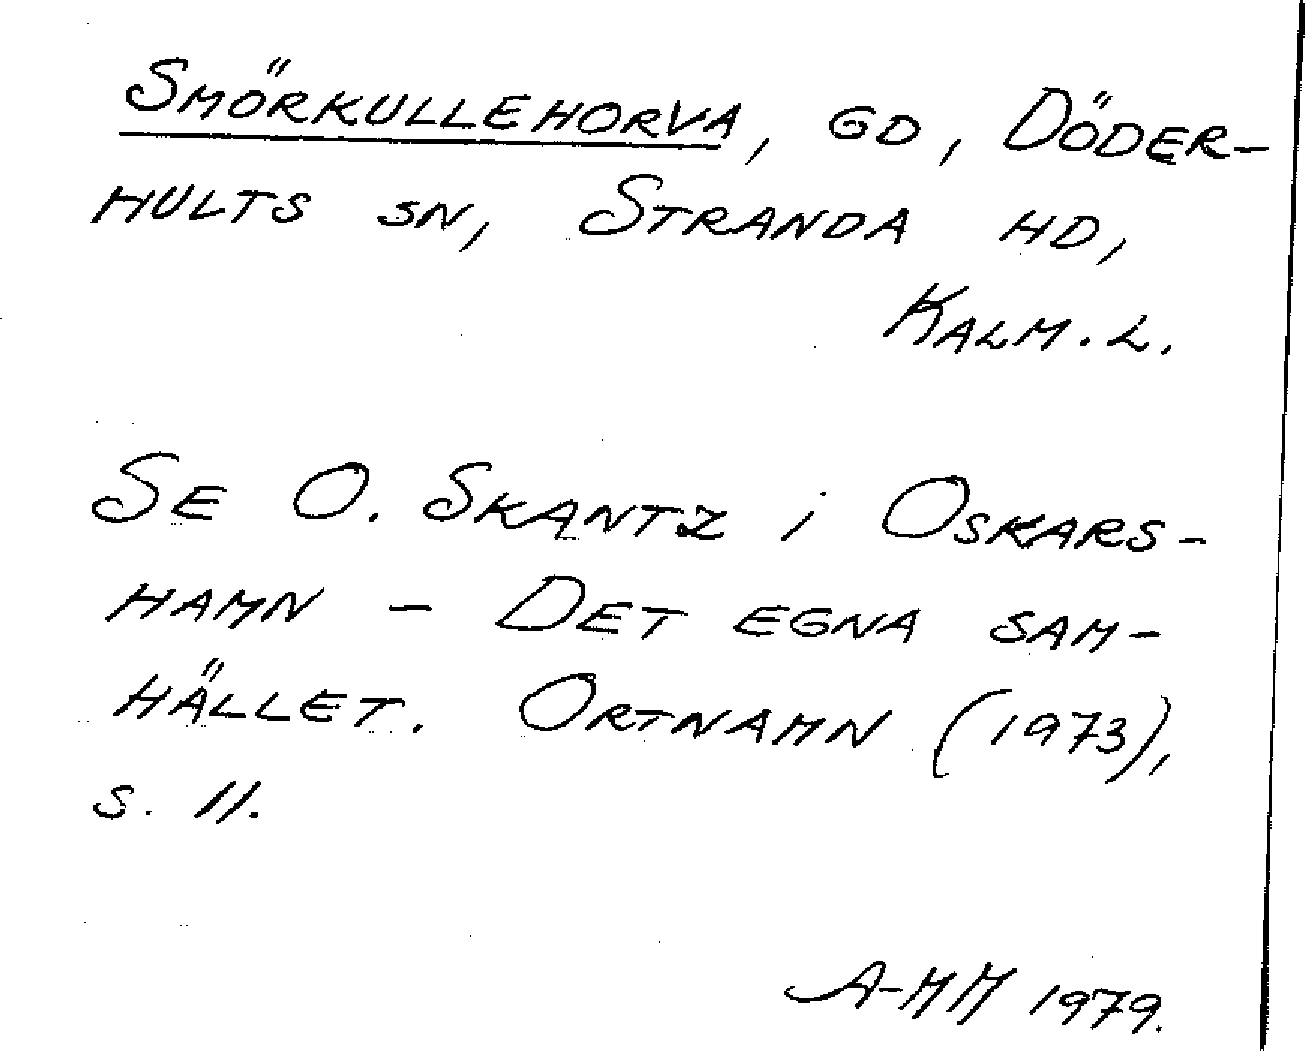 SMÖRKULLEHORVA, GD, DÖDER-
HULTS SN, STRANDA HD,
KALM. L.
SE O. SKANTZ i OSKARS-
HAMN - DET EGNA SAM-
HÄLLET. ORTNAMN (1973),
S. 11.
A-MM 1979.